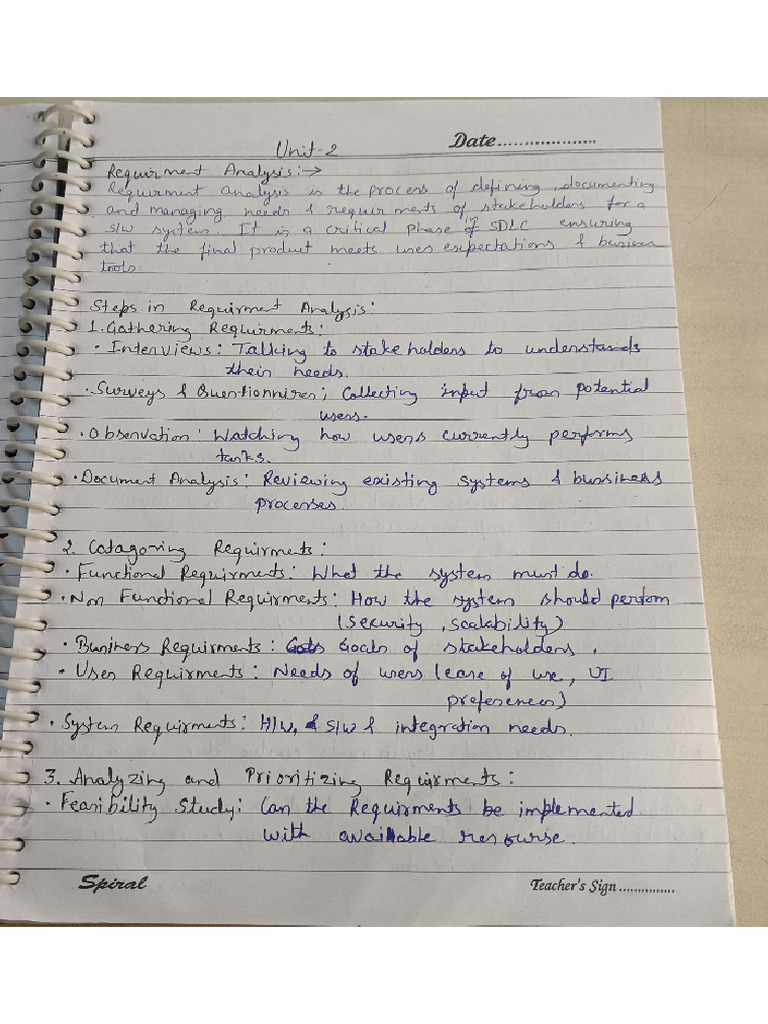 Unit-2
Date...................
Requirment Analysis:→
Requirment analysis is the process of defining, documenting
and managing needs & requirments of stakeholders for a
s/w system. It is a critical phase of in SDLC ensuring
that the final product meets uses expectations &
tools
Steps in Requirment Analysis:
1. Gathering Requirments:
• Interviews: Talking to stakeholders to understands
their needs.
• Surveys & Questionnires; Collecting input from potential
users.
• Observation: Watching how users currently performs
tasks.
• Document Analysis: Reviewing existing systems & bussiness
processes.
2. Catagoring Requirments:
• Functional Requirments: What the system must do.
• Non Functional Requirments: How the system should perfom
(security, scalability)
• Business Requirments: Goals of stakeholders.
• User Requirments: Needs of users (ease of use, UI
preferences)
• System Requirments: H/w, & S/w & integration needs.
3. Analyzing and Prioritizing Requirments:
• Feasibility Study: Can the Requirments be implemented
with available resourse.
Spiral
Teacher's Sign...............